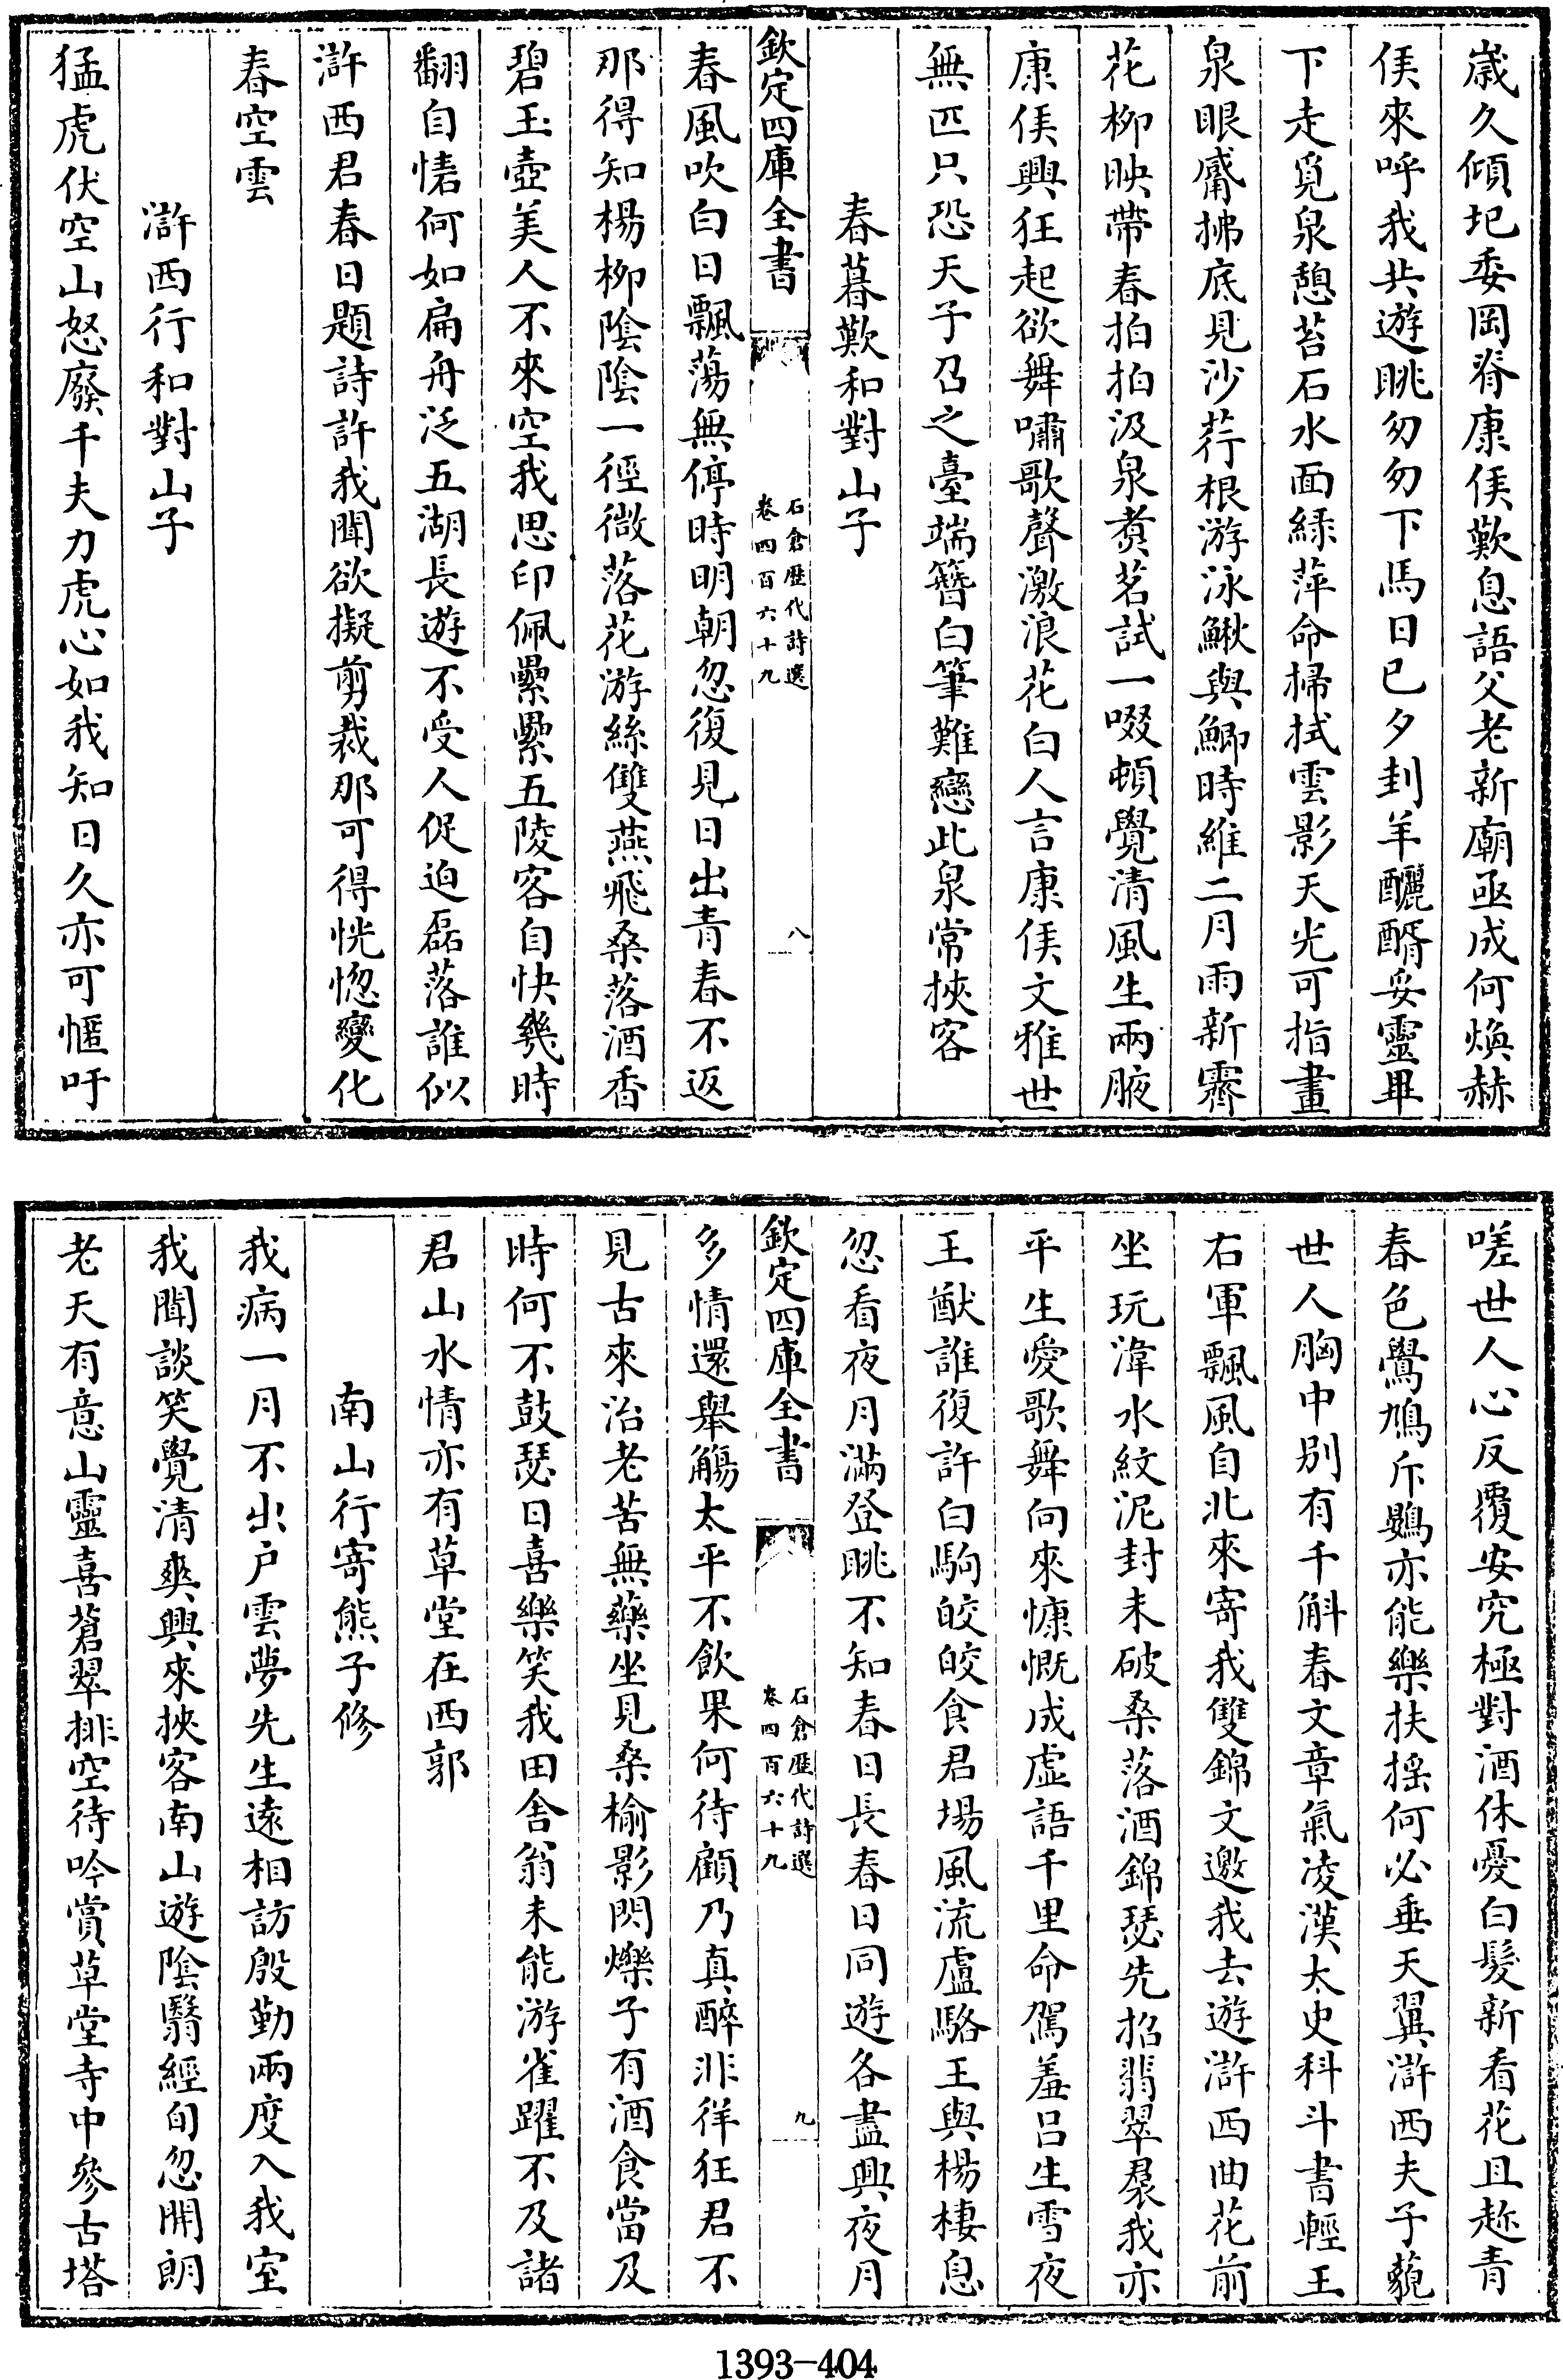 歲久傾圮委岡脊康侯歎息語父老新廟亟成何煥赫
侯來呼我共遊眺匆匆下馬日已夕刲羊釃醑妥靈畢
下走覓泉憩苔石水面綠萍命掃拭雲影天光可指畫
泉眼觱拂底見沙荇根游泳鰍與鯽時維二月雨新霽
花柳映帶春拍拍汲泉煑茗試一啜頓覺清風生兩腋
康侯興狂起欲舞嘯歌聲激浪花白人言康侯文雅世
無匹只恐天子召之臺端簪白筆難戀此泉常挾客
春暮歎和對山子
欽定四庫全書
石倉歷代詩選
卷四百六十九
八
春風吹白日飄蕩無停時明朝忽復見日出青春不返
那得知楊柳陰陰一徑微落花游絲雙燕飛桑落酒香
碧玉壺美人不來空我思印佩纍纍五陵客自快幾時
翻自悽何如扁舟泛五湖長遊不受人促迫磊落誰似
滸西君春日題詩許我聞欲擬剪裁那可得恍惚變化
春空雲
滸西行和對山子
猛虎伏空山怒廢千夫力虎心如我知日久亦可愜吁
嗟世人心反覆安究極對酒休憂白髮新看花且趂青
春色鷽鳩斥鷃亦能樂扶搖何必垂天翼滸西夫子藐
世人胸中別有千斛春文章氣凌漢太史科斗書輕王
右軍飄風自北來寄我雙錦文邀我去遊滸西曲花前
坐玩湋水紋泥封未破桑落酒錦瑟先招翡翠裠我亦
平生愛歌舞向來慷慨成虛語千里命駕羞呂生雪夜
王猷誰復許白駒皎皎食君場風流盧駱王與楊棲息
忽看夜月滿登眺不知春日長春日同遊各盡興夜月
欽定四庫全書
石倉歷代詩選
卷四百六十九
九
多情還舉觴太平不飲果何待顧乃真醉非徉狂君不
見古來治老苦無藥坐見桑榆影閃爍子有酒食當及
時何不鼓瑟日喜樂笑我田舍翁未能游雀躍不及諸
君山水情亦有草堂在西郭
南山行寄熊子修
我病一月不出户雲夢先生遠相訪殷勤兩度入我室
我聞談笑覺清爽興來挾客南山遊陰翳經旬忽開朗
老天有意山靈喜蒼翠排空待吟賞草堂寺中參古塔
1393-404